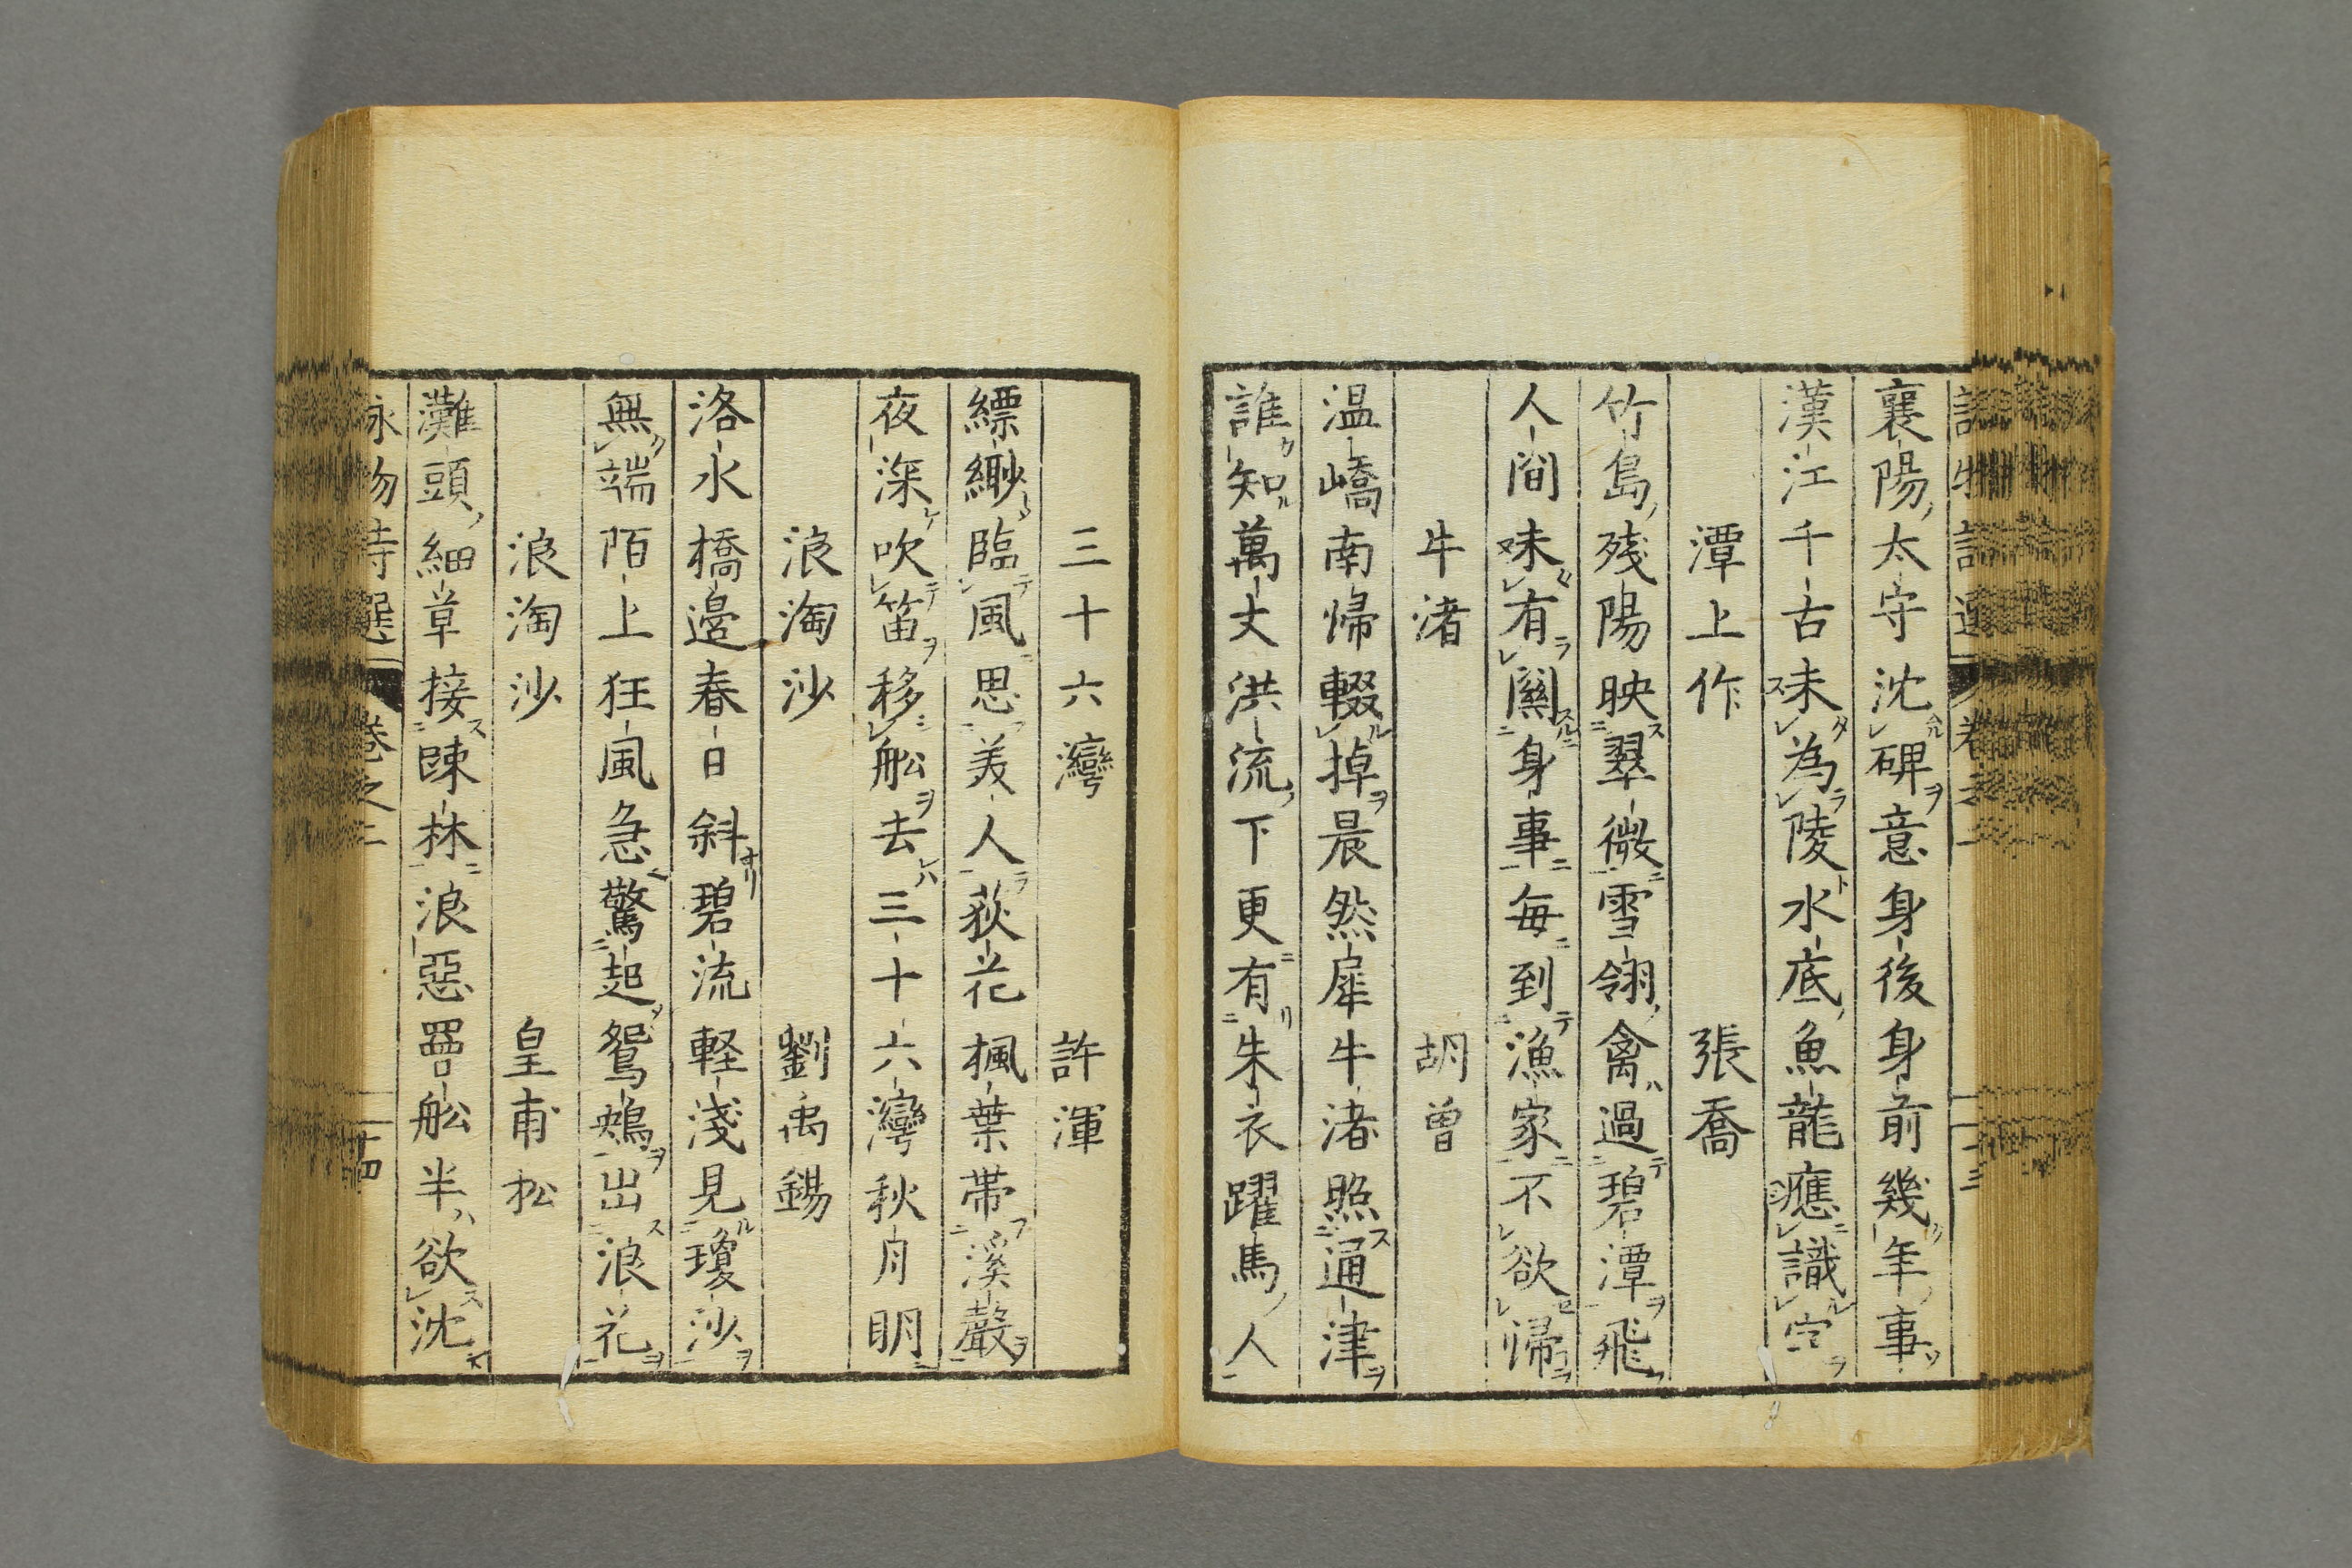 襄陽太守沈碑意身後身前幾年事
漢江千古未為陵水底魚龍應識字
潭上作 張喬
竹島殘陽映翠微雪翎禽過碧潭飛
人間未有關身事每到漁家不欲帰
牛渚 胡曽
温嶠南帰輟掉晨然犀牛渚照通津
誰知萬丈洪流下更有朱衣躍馬人
三十六灣 許渾
縹緲臨風思美人荻花楓葉帯溪聲
夜深吹笛移舩去三十六灣秋月明
浪淘沙 劉禹錫
洛水橋邉春日斜碧流軽淺見瓊沙
無端陌上狂風急驚起鴛鴦出浪花
浪淘沙 皇甫松
灘頭細草接踈林浪惡罾舩半欲沈
詠物詩選 巻之二 十四